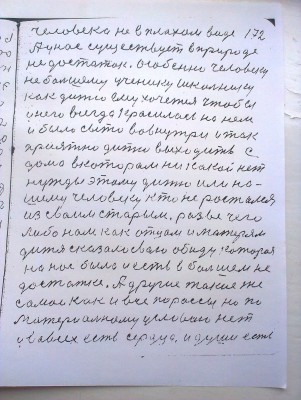 человека не в плахом виде 172
А у нас существует в природе
не достаток. Особенно человеку
не большему ученику школнику
как дитю ему хочется чтобы
у него всегда красилась на нем
и было сыто во внутри и так
приятно дитю выходить с
дома в котором ни какой нет
нужды этому дитю или на-
шему человеку кто не ростался
из своим старым, разве чего
либо нам как отцам и матерям
дитя сказало свою обиду которая
на нас была и есть в большем не
достатке. А другие такие же
самые как и все по рассы но по
материалному условию нет
у всех есть сердца, и души есть